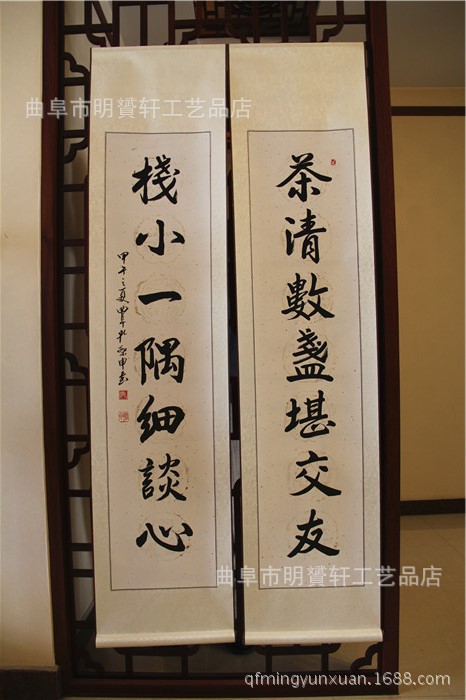 茶清數盞堪交友
棧小一隅细談心
甲午之夏
曲阜市明贇轩工艺品店
曲阜市明贇轩工艺品店
qfmingyunxuan.1688.com